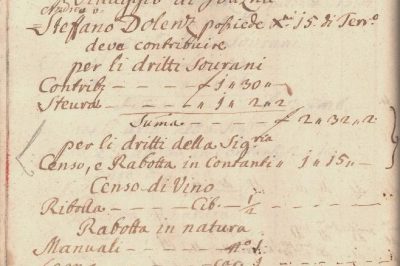 Stefano Dolenz possiede X.ni 15 di Terr.o
deve contribuire
per li dritti Sourani
Contrib.z - - - - £ 1 „ 30 „ -
Steura - - - - - „ 1 „ 2 „ 2
Suma - - - £ 2 „ 32 „ 2
per li dritti della Sig.ria
Censo, e Rabotta in Contanti „ 1 „ 15 „ -
Censo di Vino
Ribolla - - - - - Cib. - 1/2
Rabotta in natura
Manuali - - - - - n.o 1.